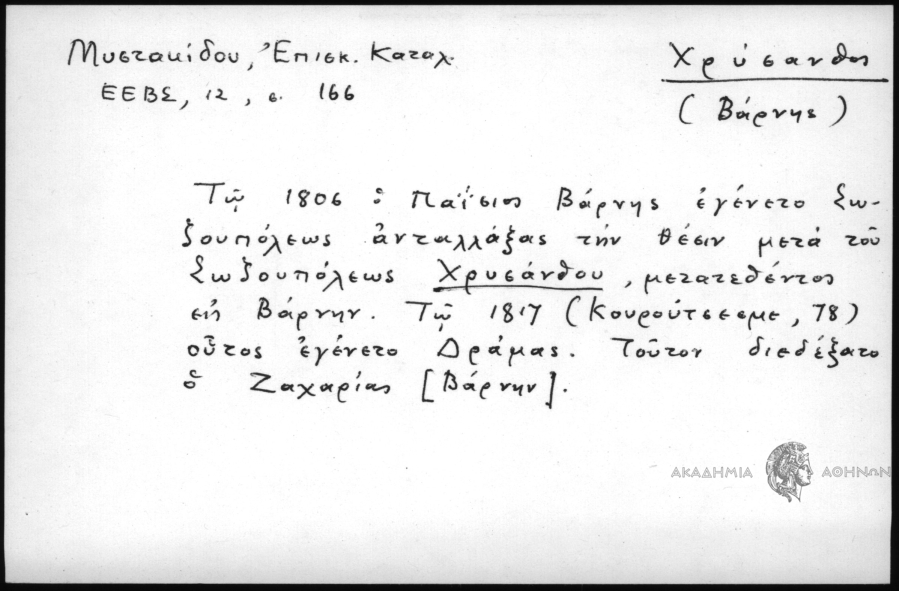 Μυστακίδου, Ἐπισκ. Καταλ.
ΕΕΒΣ, 12, σ. 166
Χρύσανθος
(Βάρνης)
Τῷ 1806 ὁ Παΐσιος Βάρνης ἐγένετο Σω-
ζουπόλεως ἀνταλλάξας τὴν θέσιν μετὰ τοῦ
Σωζουπόλεως Χρυσάνθου, μετατεθέντος
εἰς Βάρνην. Τῷ 1817 (Κουρούτσεσμε, 78)
οὗτος ἐγένετο Δράμας. Τοῦτον διεδέξατο
ὁ Ζαχαρίας [Βάρνην].
ΑΚΑΔΗΜΙΑ ΑΘΗΝΩΝ